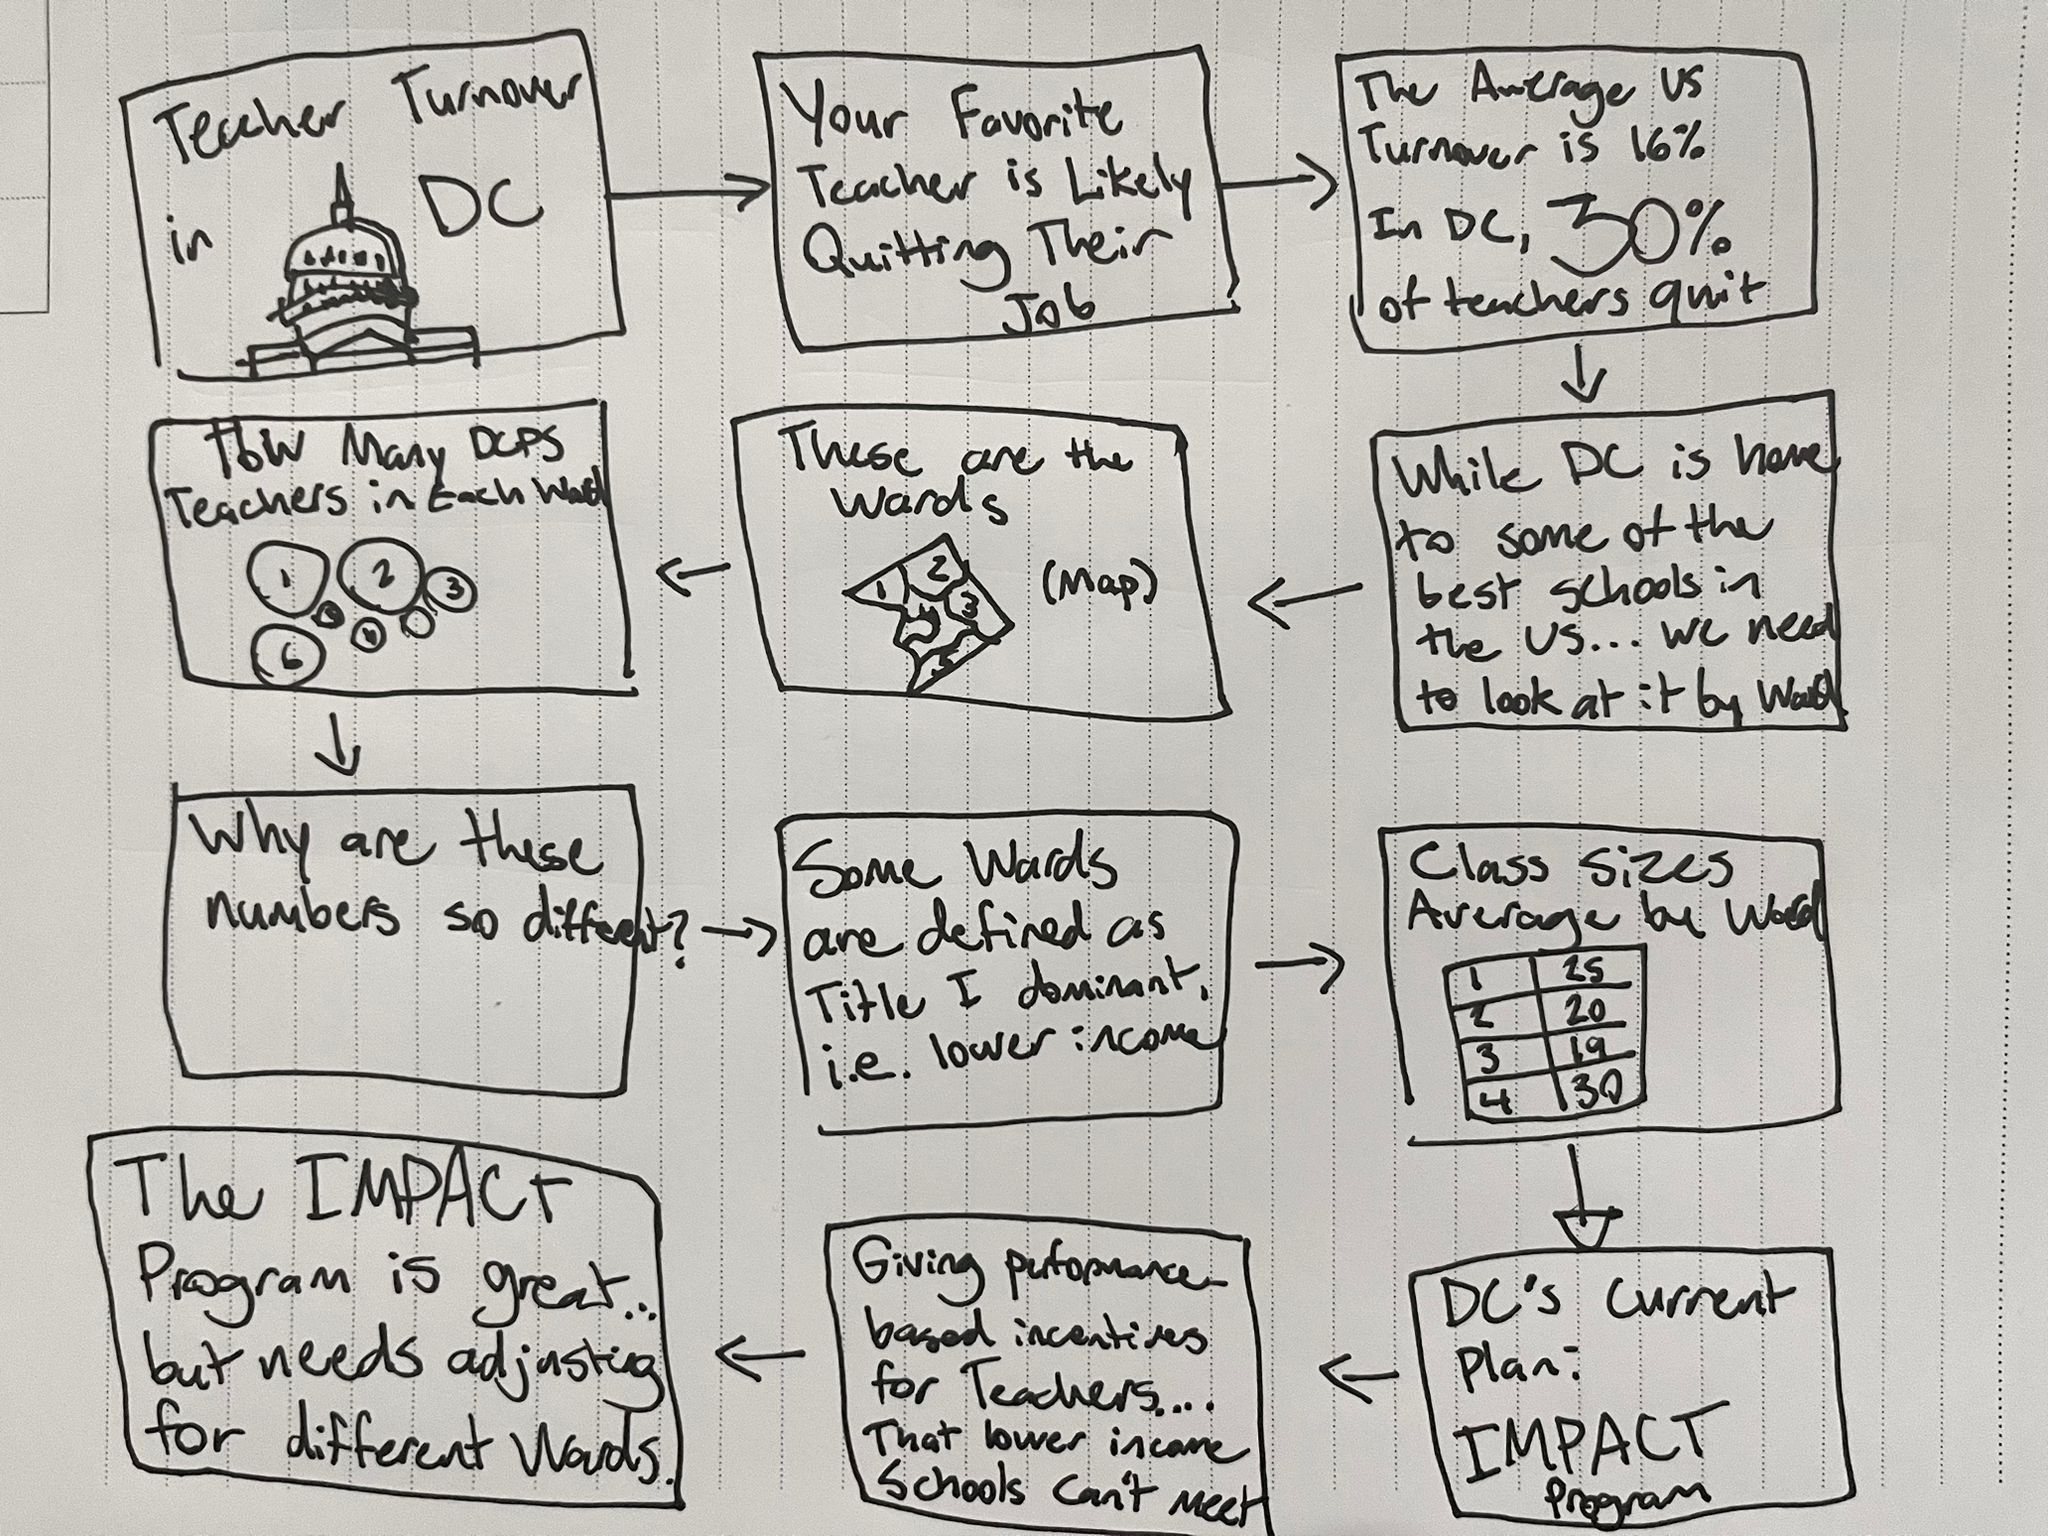 Teacher Turnover
in DC
Your Favorite
Teacher is Likely
Quitting Their
Job
The Average US
Turnover is 16%
In DC, 30%
of teachers quit
While DC is home
to some of the
best schools in
the US... we need
to look at it by Ward
These are the
Wards
1 2
3
(Map)
How Many DCPS
Teachers in Each Ward
1 2 3
6
Why are these
numbers so different?
Some Wards
are defined as
Title I dominant,
i.e. lower income
Class Sizes
Average by Ward
1 25
2 20
3 19
4 30
DC's current
plan:
IMPACT
Program
Giving performance-
based incentives
for Teachers....
That lower income
Schools can't meet
The IMPACT
Program is great...
but needs adjusting
for different Wards.